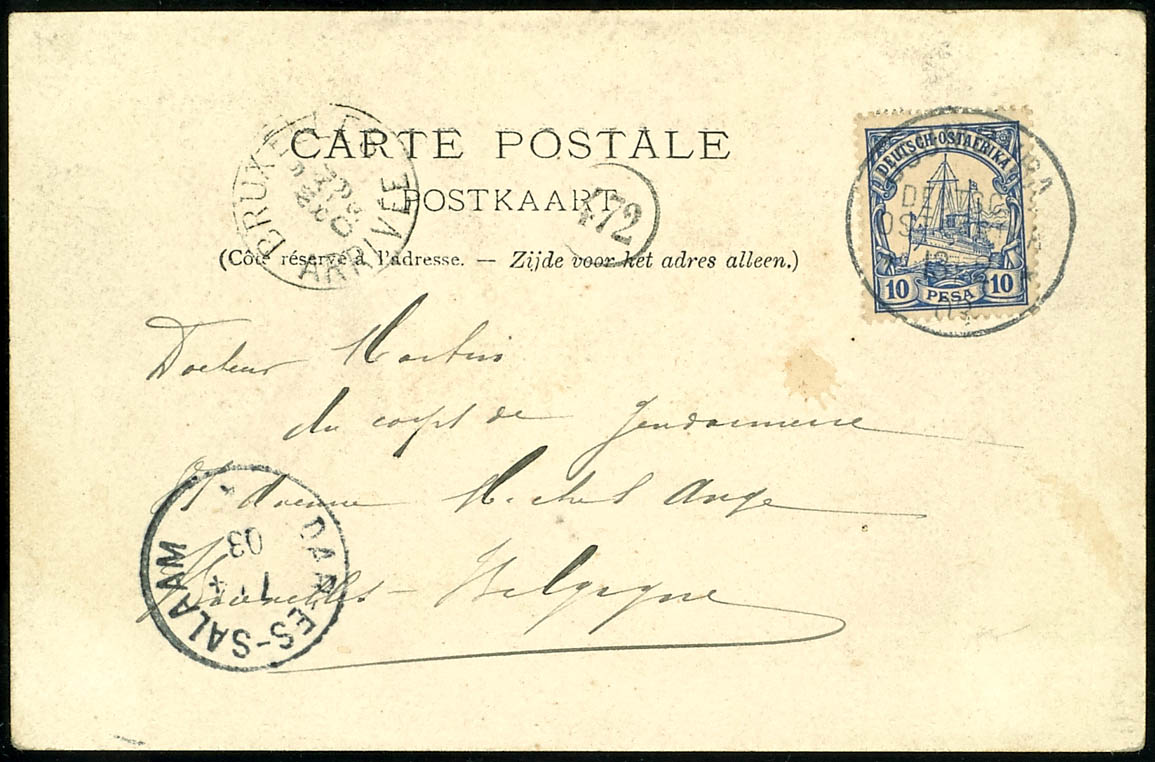 CARTE POSTALE
POSTKAART
(Côté réservé à l'adresse. — Zijde voor het adres alleen.)
BRUXELLES
ARRIVÉE
472
DEUTSCH-OSTAFRIKA
10 PESA 10
Docteur Martin
du corps de Gendarmerie
avenue Michel Ange
Bruxelles — Belgique
DAR-ES-SALAAM
03